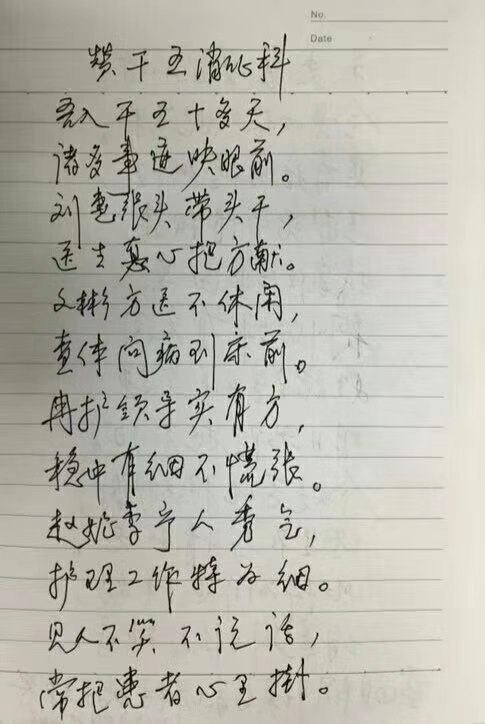 No.
Date
赞干五消化科
吾入干五十多天,
诸多事迹映眼前。
刘惠张头带头干,
医生真心把方献。
文彬方医不休闲,
查体问病到床前。
冉护领导实有方,
稳中有细不慌張。
赵妮李宁人秀气,
护理工作特为细。
见人不笑不说话,
常把患者心里掛。